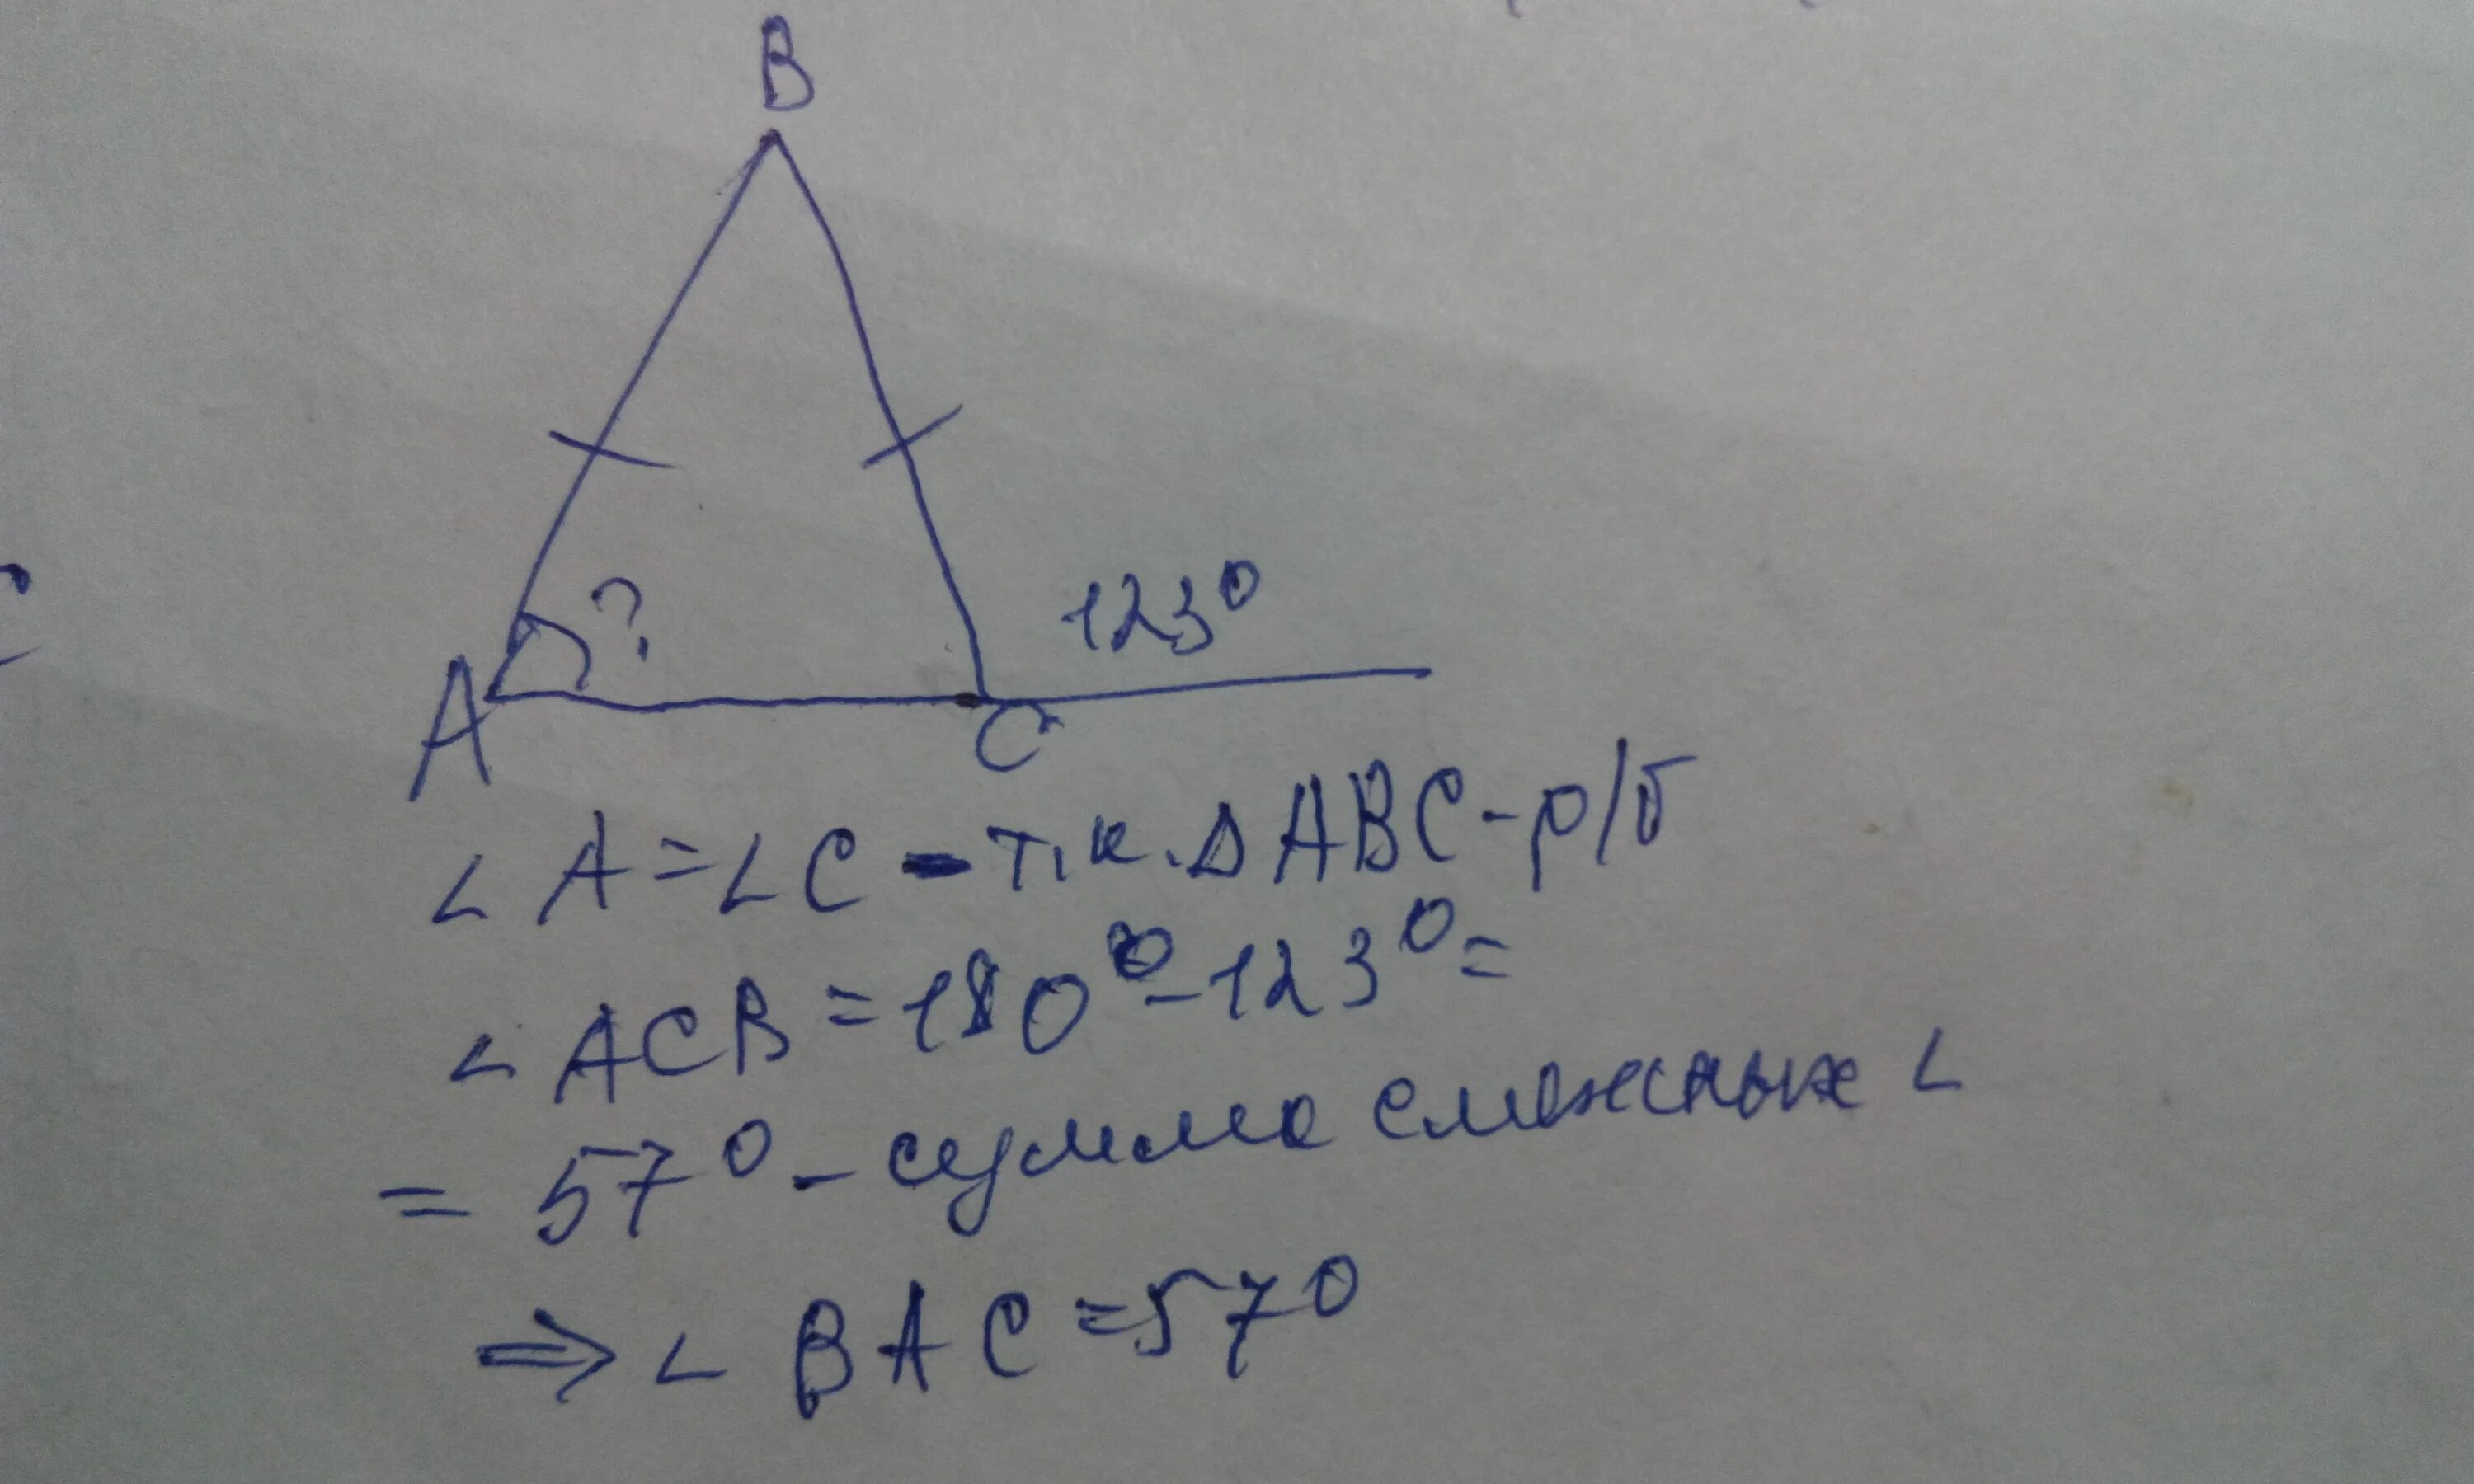 B
?
123°
A
C
∠ A = ∠ C - т.к. Δ ABC - р/б
∠ ACB = 180° - 123° =
= 57° - сумма смежных ∠
⇒ ∠ BAC = 57°